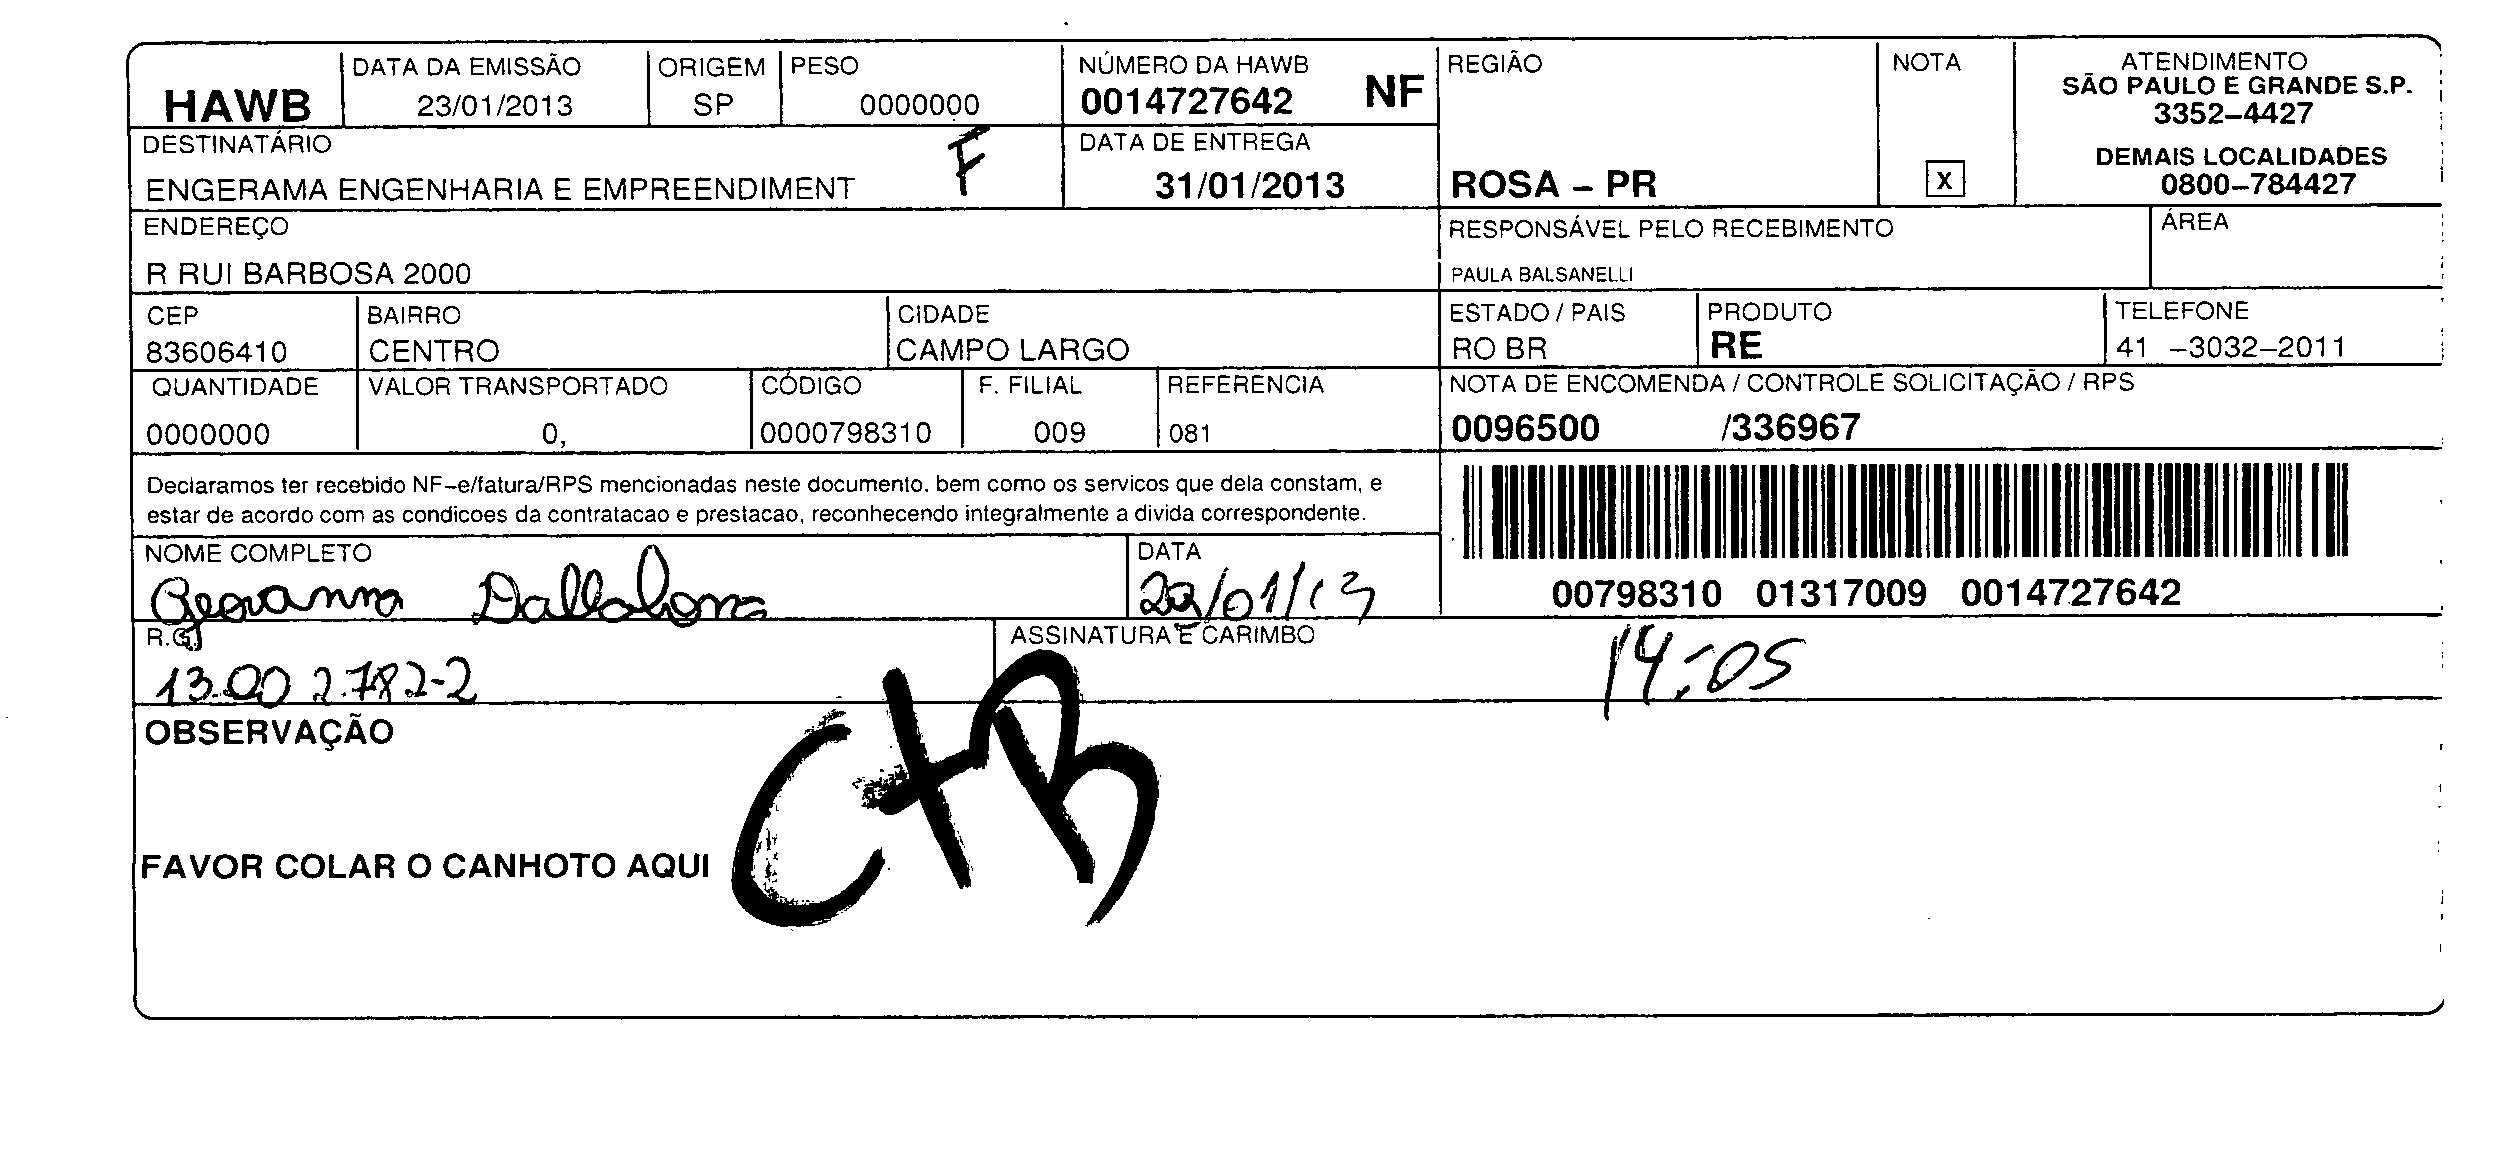 HAWB
DATA DA EMISSÃO
23/01/2013
ORIGEM
SP
PESO
0000000
NÚMERO DA HAWB
0014727642 NF
REGIÃO
ROSA – PR
NOTA
X
ATENDIMENTO
SÃO PAULO E GRANDE S.P.
3352–4427
DEMAIS LOCALIDADES
0800–784427
DESTINATÁRIO
ENGERAMA ENGENHARIA E EMPREENDIMENT
F
DATA DE ENTREGA
31/01/2013
ENDEREÇO
R RUI BARBOSA 2000
RESPONSÁVEL PELO RECEBIMENTO
PAULA BALSANELLI
ÁREA
CEP
83606410
BAIRRO
CENTRO
CIDADE
CAMPO LARGO
ESTADO / PAIS
RO BR
PRODUTO
RE
TELEFONE
41 –3032–2011
QUANTIDADE
0000000
VALOR TRANSPORTADO
0,
CÓDIGO
0000798310
F. FILIAL
009
REFERENCIA
081
NOTA DE ENCOMENDA / CONTROLE SOLICITAÇÃO / RPS
0096500 /336967
Declaramos ter recebido NF–e/fatura/RPS mencionadas neste documento. bem como os servicos que dela constam, e
estar de acordo com as condicoes da contratacao e prestacao, reconhecendo integralmente a divida correspondente.
00798310 01317009 0014727642
NOME COMPLETO
Geovanna Dallabona
DATA
29/01/13
R.G.
13.002.782-2
ASSINATURA E CARIMBO
14:05
OBSERVAÇÃO
CTB
FAVOR COLAR O CANHOTO AQUI